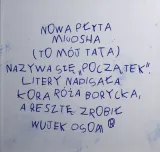 NOWA PŁYTA
MIUOSHA
(TO MÓJ TATA)
NAZYWA SIĘ „POCZĄTEK”.
LITERY NAPISAŁA
KORA RÓŻA BORYCKA,
A RESZTĘ ZROBIŁ
WUJEK OSOM